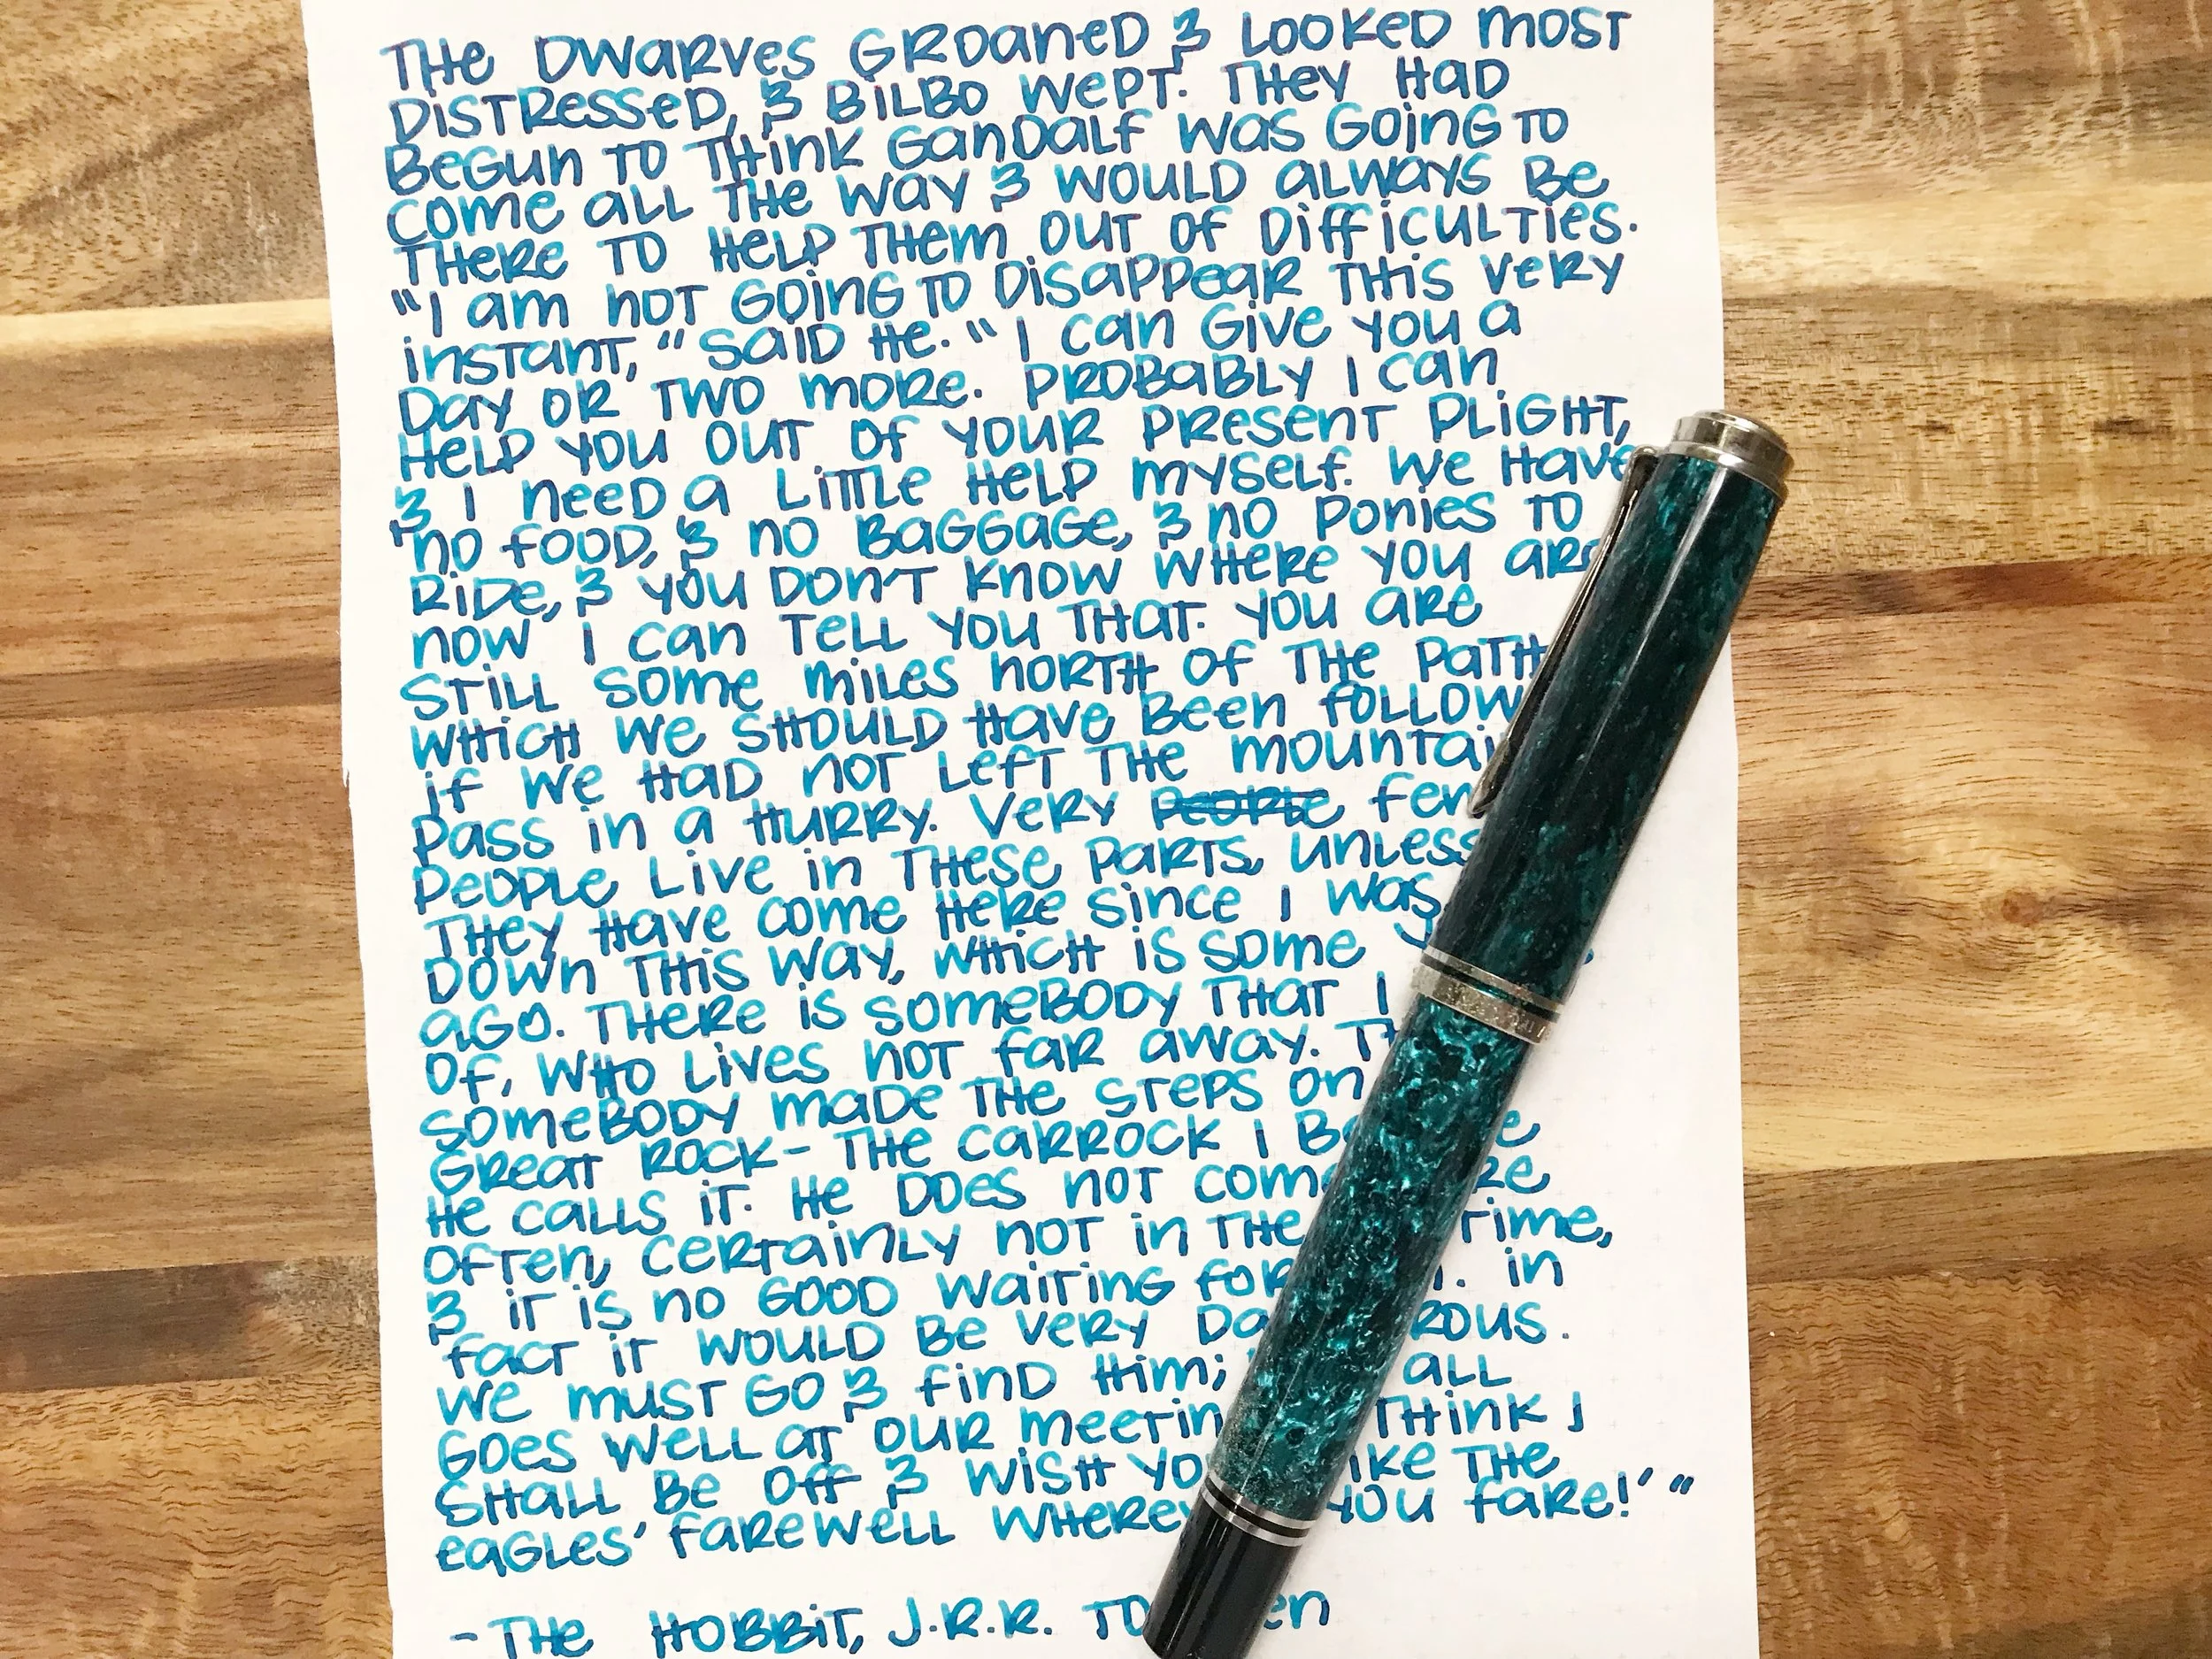 THE DWARVES GROANED & LOOKED MOST
DISTRESSED, & BILBO WEPT. THEY HAD
BEGUN TO THINK GANDALF WAS GOING TO
COME ALL THE WAY & WOULD ALWAYS BE
THERE TO HELP THEM OUT OF DIFFICULTIES.
"I AM NOT GOING TO DISAPPEAR THIS VERY
INSTANT," SAID HE. "I CAN GIVE YOU A
DAY OR TWO MORE. PROBABLY I CAN
HELP YOU OUT OF YOUR PRESENT PLIGHT,
& I NEED A LITTLE HELP MYSELF. WE HAVE
NO FOOD, & NO BAGGAGE, & NO PONIES TO
RIDE, & YOU DON'T KNOW WHERE YOU ARE
NOW I CAN TELL YOU THAT. YOU ARE
STILL SOME MILES NORTH OF THE PATH
WHICH WE SHOULD HAVE BEEN FOLLOW
IF WE HAD NOT LEFT THE MOUNTAI
PASS IN A HURRY. VERY FEW
PEOPLE LIVE IN THESE PARTS, UNLESS
THEY HAVE COME HERE SINCE I WAS
DOWN THIS WAY, WHICH IS SOME
AGO. THERE IS SOMEBODY THAT I
OF, WHO LIVES NOT FAR AWAY.
SOMEBODY MADE THE STEPS ON
GREAT ROCK- THE CARROCK I
HE CALLS IT. HE DOES NOT COME
OFTEN, CERTAINLY NOT IN THE TIME,
& IT IS NO GOOD WAITING FOR IN
FACT IT WOULD BE VERY
WE MUST GO & FIND HIM; ALL
GOES WELL AT OUR THINK I
SHALL BE OFF & WISH LIKE THE
EAGLES' FAREWELL YOU FARE!' "
- THE HOBBIT, J.R.R.